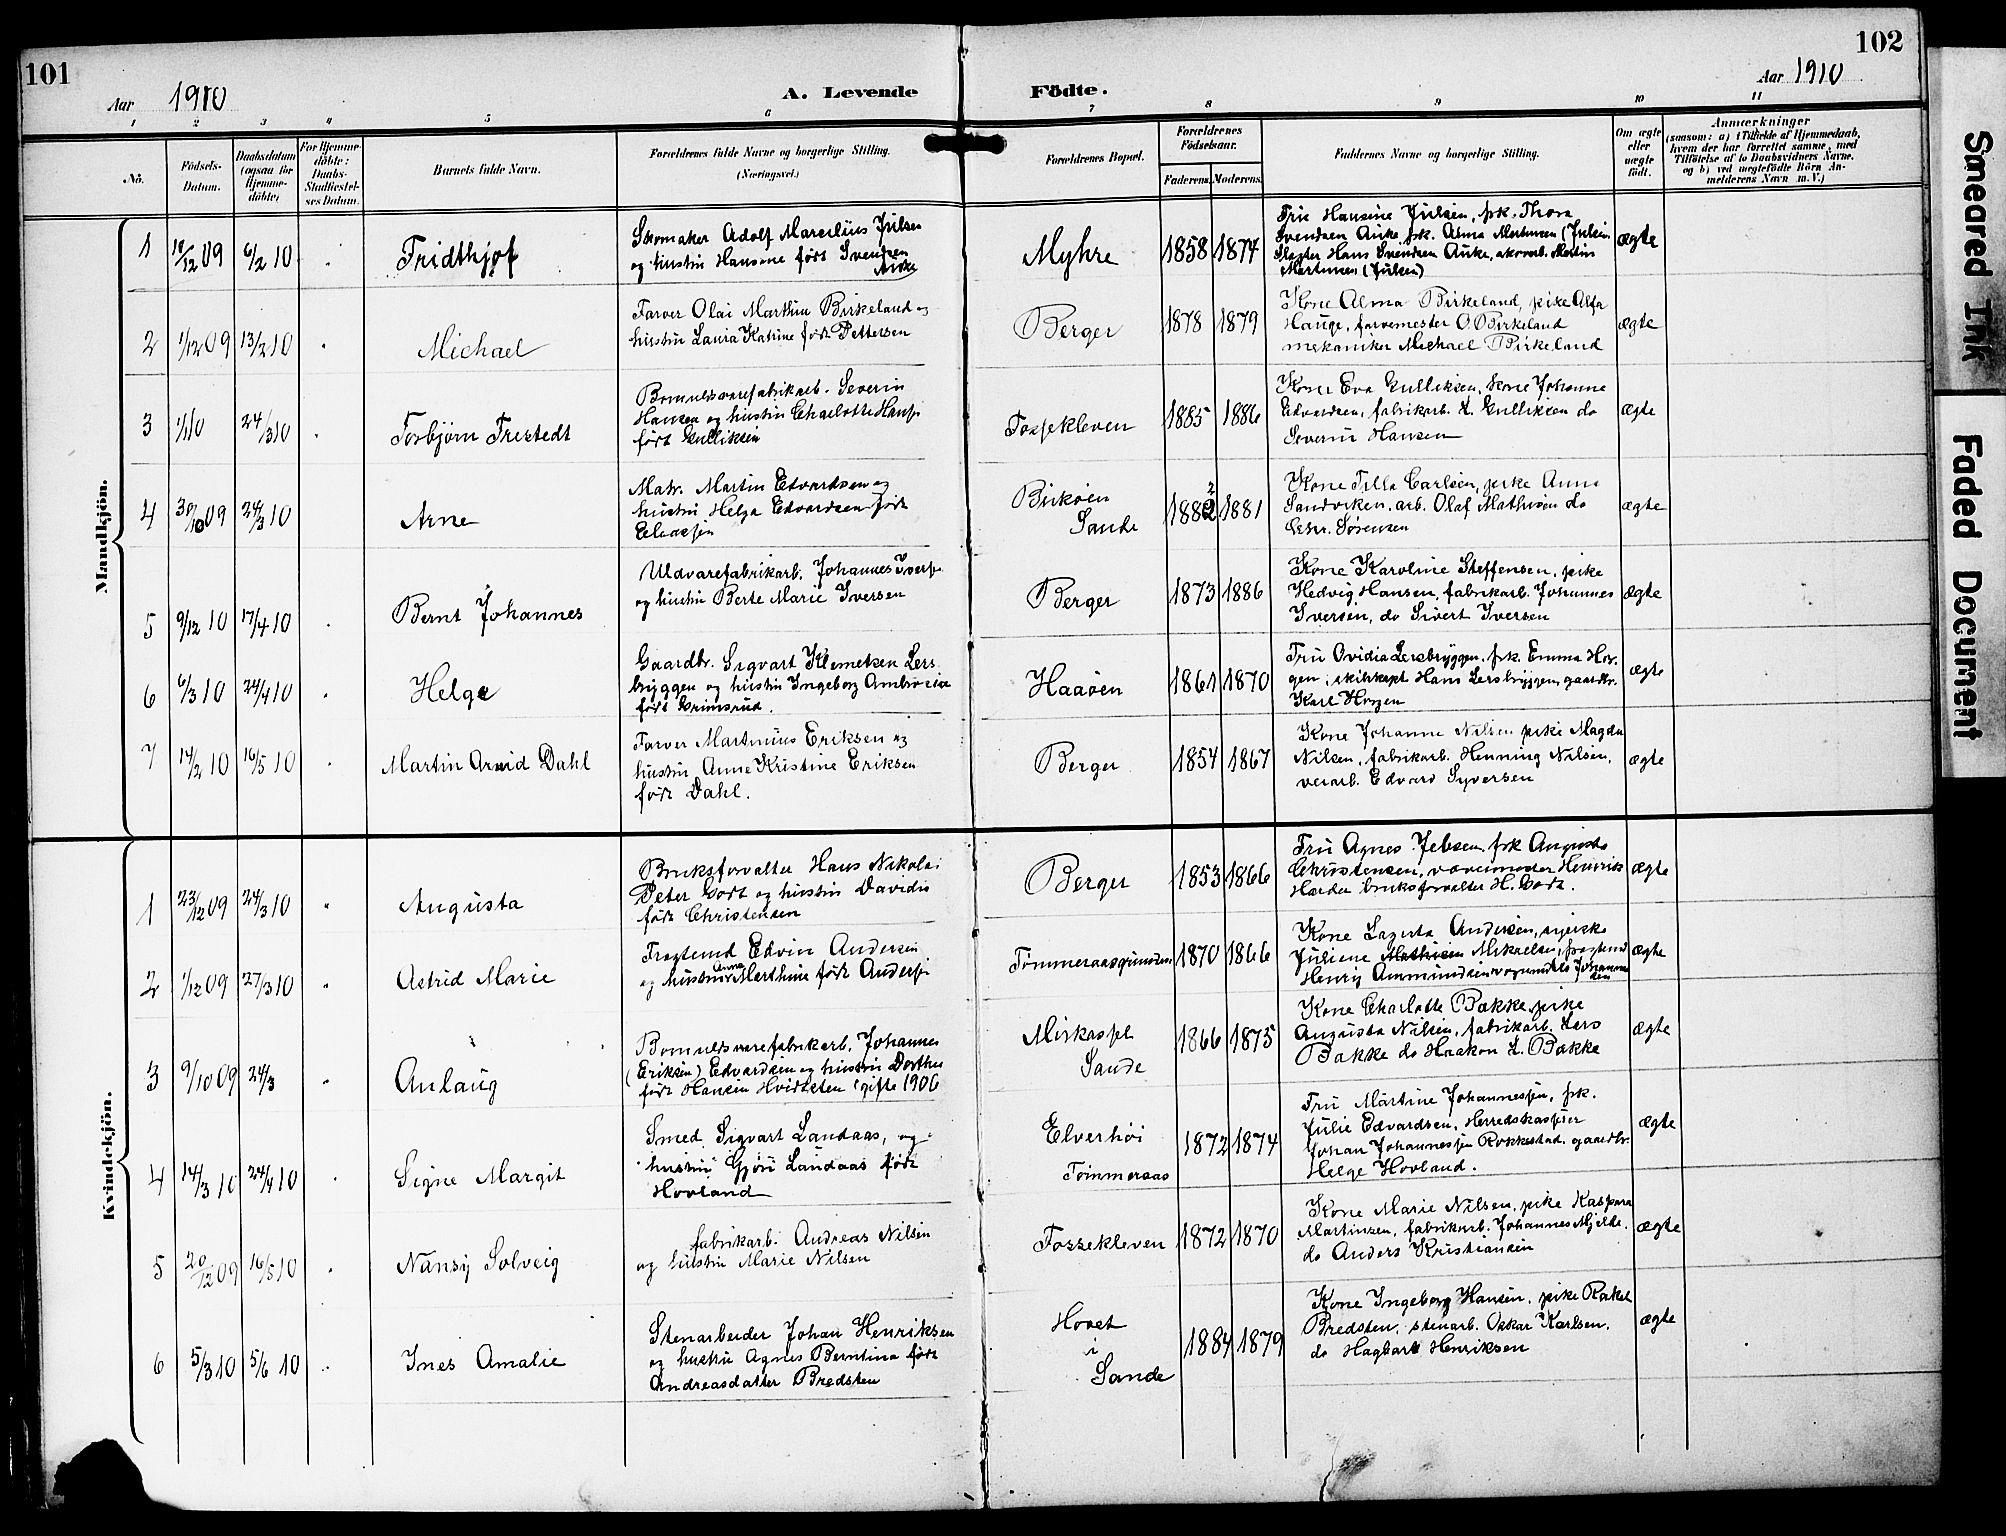 101
102
Aar 1910
A. Levende Födte.
Aar 1910
1 2 3 4 5 6 7 8 9 10 11
No.
Födsels-Datum.
Daabsdatum (ogsaa for Hjemme-döbte)
For Hjemme-döbte: Daabs-Stadfæstel-ses Datum.
Barnets fulde Navn.
Forældrenes fulde Navne og borgerlige Stilling.
(Næringsvei.)
Forældrenes Bopæl.
Forældrenes Fødselsaar.
Faderens. Moderens.
Faddernes Navne og borgerlige Stilling.
Om ægte eller uægte født.
Anmærkninger
(saasom: a) i Tilfælde af Hjemmedaab,
hvem der har forrettet samme, med
Tilføielse af to Daabsvidners Navne,
og b) ved uægtefödte Börn An-
melderens Navn m. V.)
Mandkjön.
1 10/12 09 6/2 10 Fridthjof
Skomaker Adolf Marcelius Julsen
og hustru Hansine født Svendsen
Auke
Myhre 1858 1874
Fru Hansine Julsen, frk. Thora
Svendsen Auke, frk. Alma Martinsen (Julsen
Slagter Hans Svendsen Auke, skomb. Martin
Martinsen (Julsen)
ægte
2 1/12 09 13/2 10 Michael
Farver Olai Marthin Birkeland og
hustru Laura Katrine født Pettersen
Berger 1878 1879
Kone Alma Birkeland, pike Alfa
Hauge, farvemester O. Birkeland
mekaniker Michael Birkeland
ægte
3 1/1 10 24/3 10 Torbjørn Frestedt
Bomuldsvarefabrikarb. Severin
Hansen og hustru Charlotte Hansen
født Gulliksen
Fossekleven 1885 1886
Kone Eva Gulliksen, kone Johanne
Edvardsen, fabrikarb. L. Gulliksen do
Severin Hansen
ægte
4 30/10 09 24/3 10 Arne
Matr. Martin Edvardsen og
hustru Helga Edvardsen født
Eliassen
Birköen
Sande
1882 1881
Kone Tilla Carlsen, pike Anna
Sandviken, arb. Olaf Mathisen do
Chr. Sørensen
ægte
5 9/12 10 17/4 10 Bernt Johannes
Uldvarefabrikarb. Johannes Iversen
og hustru Berte Marie Iversen
Berger 1873 1886
Kone Karoline Steffensen, pike
Hedvig Hansen, fabrikarb. Johannes
Iversen, do Sivert Iversen
ægte
6 6/3 10 24/4 10 Helge
Gaardbr. Sigvart Klemetsen Lers-
bryggen og hustru Ingeborg Ambrosia
født Grimsrud.
Haaöen 1861 1870
Fru Ovidia Lersbryggen, frk. Emma Hor-
gen, skibskapt Hans Lersbryggen, gaardbr.
Karl Horgen
ægte
7 14/2 10 16/5 10 Martin Arvid Dahl
Farver Martinius Eriksen og
hustru Anne Kristine Eriksen
født Dahl.
Berger 1854 1867
Kone Johanne Nilsen pike Magda
Nilsen, fabrikarb. Henning Nilsen,
verarb. Edvard Syversen
ægte
Kvindekjön.
1 23/12 09 24/3 10 Augusta
Bruksforvalter Hans Nikolai
Peter Gort og hustru Davidia
født Christensen
Berger 1853 1866
Fru Agnes Jebsen, frk Augusta
Christensen, vævemester Henrik
Harder bruksforvalter H. Gort.
ægte
2 1/12 09 27/3 10 Astrid Marie
Fragtemd Edvin Andersen
og hustru Anna Marthine født Andersen
Tømmeraasgrunden 1870 1866
Kone Lagerta Andersen,
Juliene Mathisen Mikaelsen, fragtemd
Henry Ammundsen Johannesen
ægte
3 9/10 09 24/3 Anlaug
Bomuldsvarefabrikarb. Johannes
(Eriksen) Edvardsen og hustru Dorthea
født Hansen Hvidsten (gifte 1906
Mirkaspl
Sande
1866 1875
Kone Charlotte Bakke, pike
Augusta Nilsen, fabrikarb. Lars
Bakke do Haakon L. Bakke
ægte
4 14/3 10 24/4 10 Signe Margit
Smed Sigvart Landaas, og
hustru Gjøri Landaas født
Hovland
Elverhöi
Tømmeraas
1872 1874
Fru Martine Johannessen, frk.
Julie Edvardsen, Herredskasserer
Johan Johannessen Rokkestad, gaardbr.
Helge Hovland.
ægte
5 20/12 09 16/5 10 Nansy Solveig
fabrikarb. Andreas Nilsen
og hustru Marie Nilsen
Fossekleven 1872 1870
Kone Marie Nilsen, pike Kaspara
Martinsen, fabrikarb. Johannes Mjelde,
do Anders Kristiansen
ægte
6 5/3 10 5/6 10 Ines Amalie
Stenarbeider Johan Henriksen
og hustru Agnes Berntina født
Andreasdatter Bredsten
Hovet
i
Sande
1884 1879
Kone Ingeborg Hansen, pike Rakel
Bredsten, stenarb. Oskar Karlsen,
do Hagbart Henriksen
ægte
Smeared Ink
Faded Document